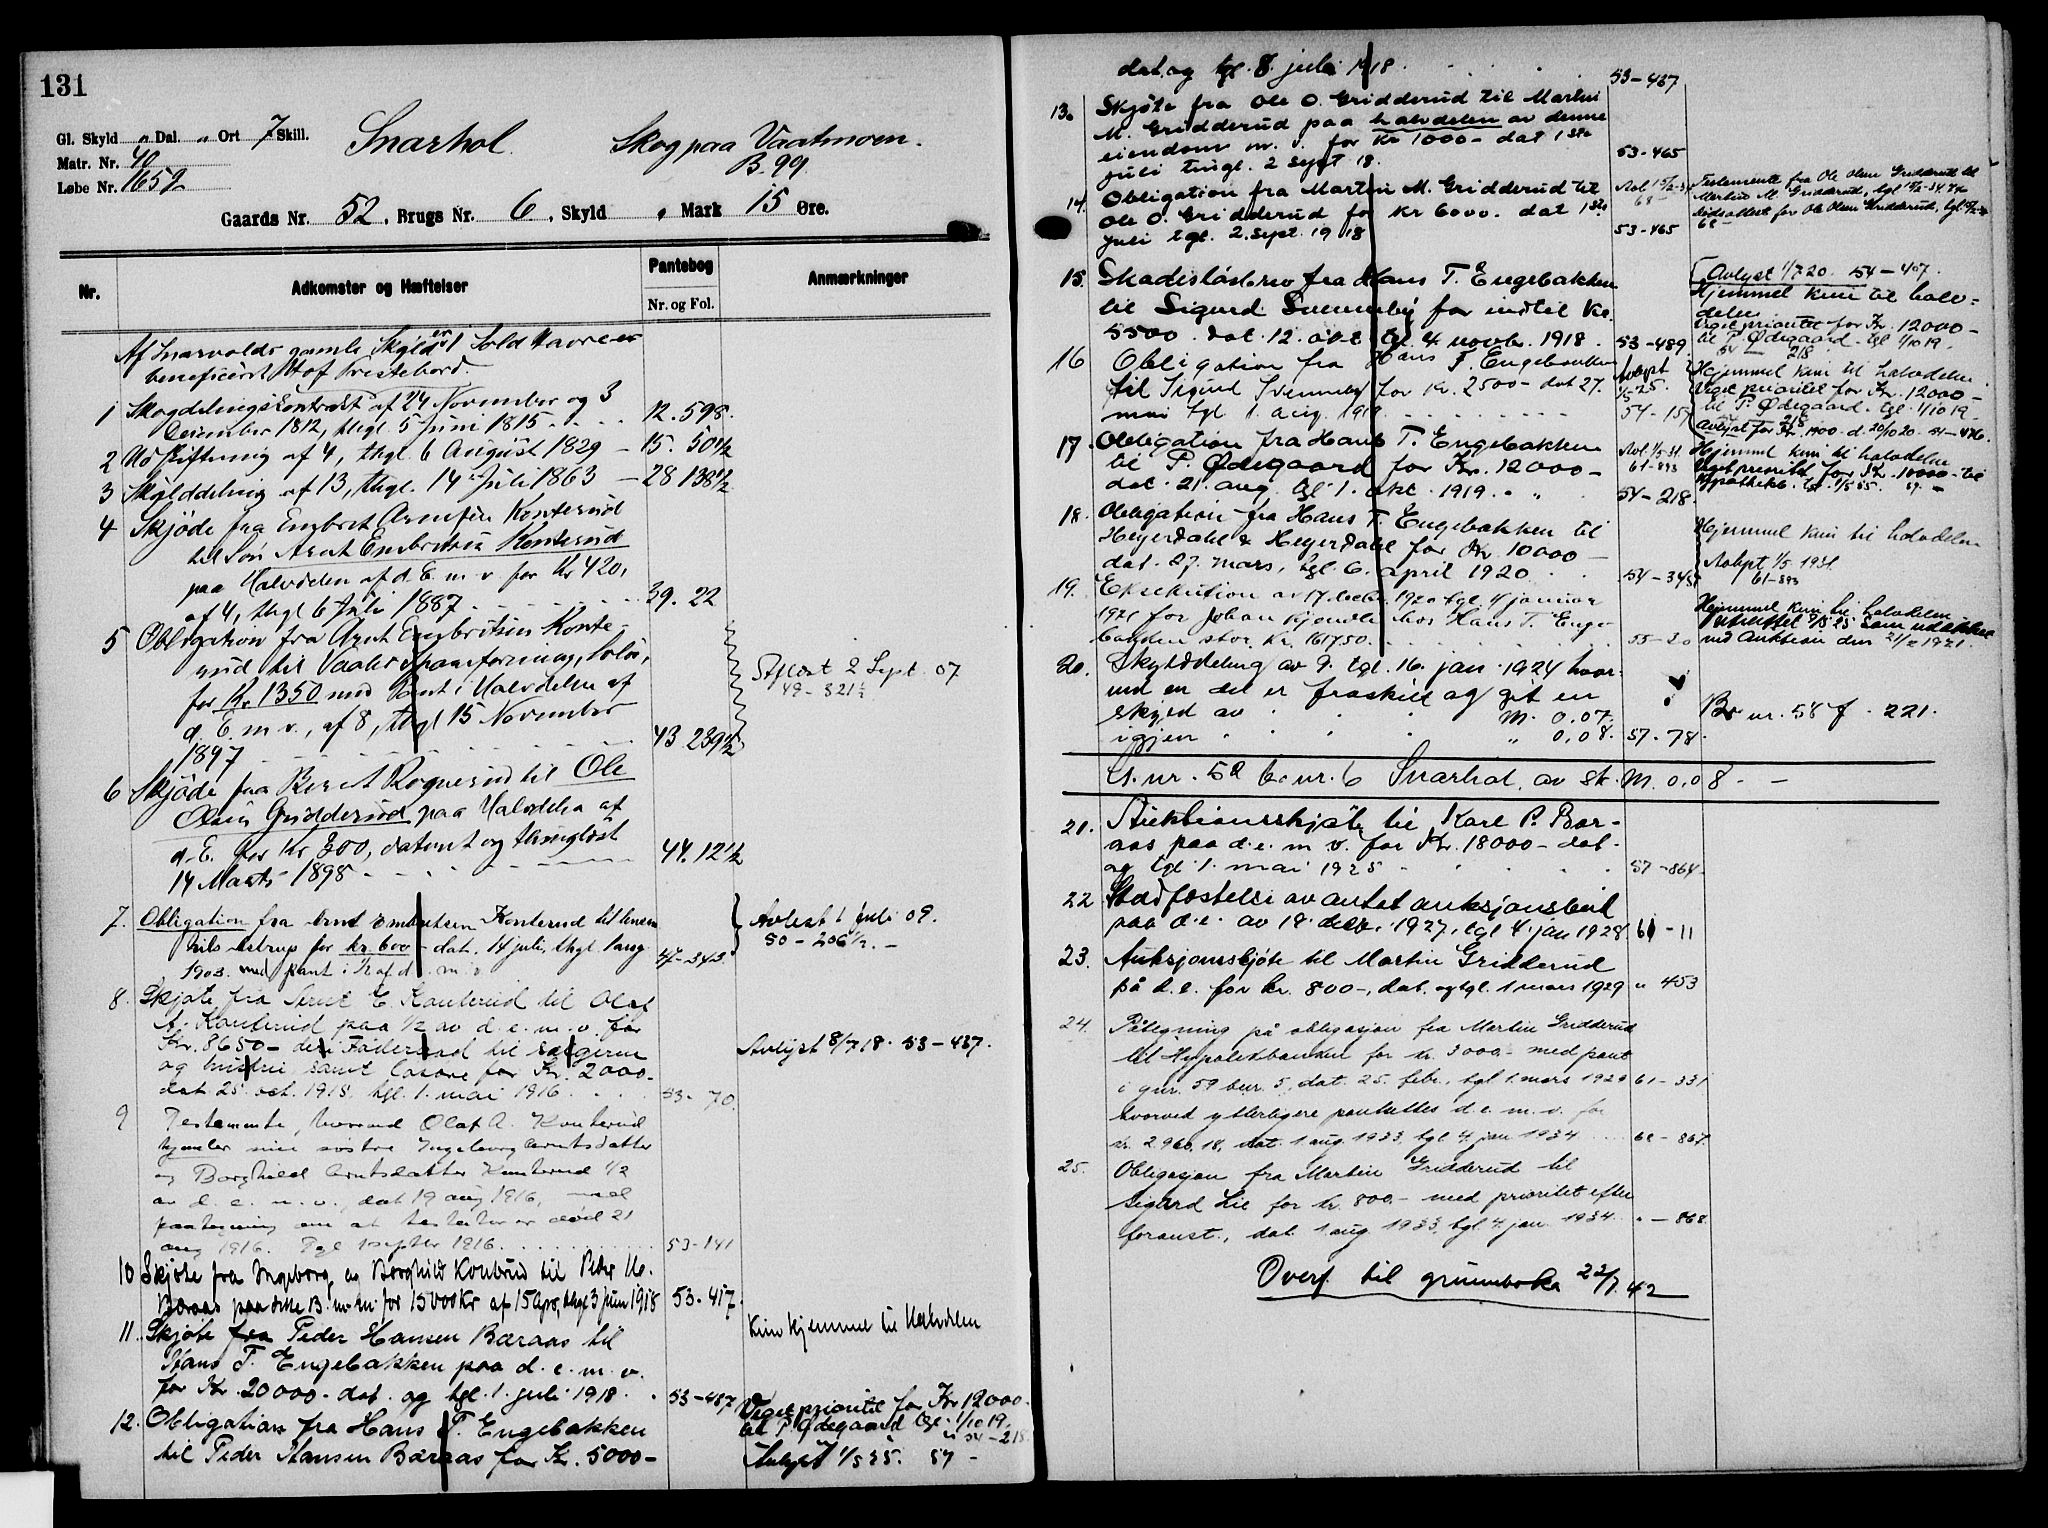 131
Gl. Skyld " Dal. " Ort 7 Skill.
Matr. Nr. 40
Løbe Nr. 1659
Snarhol. Skog paa Vaatmoen.
B. 99.
Gaards Nr. 52, Brugs Nr. 6, Skyld , Mark 15 Øre.
Nr. Adkomster og Hæftelser Pantebog Anmærkninger
Nr. og Fol.
Af Snarvolds gamle Skyld er 1 Sold Havre
beneficeret Prestebord.
1 Skogdelingskontrakt af 24 November og 3
December 1812, thgl. 5 Juni 1815 . . . 12. 598.
2 Udskiftning af 4, thgl. 6 August 1829 – 15. 50½
3 Skylddeling af 13, thgl. 14 Juli 1863 – 28 138½
4 Skjøde fra Embret Arntsen Konterud
til Søn Arnt Embretsen Konterud
paa Halvdelen af d. E. m. v. for Kr 420,
af 4, thgl 6 Juli 1887 . . . 39. 22
5 Obligation fra Arnt Embretsen Konte-
rud til Vaaler Spareforening, Solør,
for Kr 1350 med Pant i Halvdelen af
d. E. m. v., af 8, thgl 15 November
1897 . . . 43 239½
Aflæst 2 Sept. 07
49 – 321½
6 Skjøde fra Beret Rognerud til Ole
Olsen Gridderud paa Halvdelen af
d. E. for Kr 300, dateret og thinglæst
14 Marts 1898 – . . . 44. 12½
7. Obligation fra Arnt Embretsen Konterud til
Nils Astrup for kr. 600 – dat. 14 juli, thgl. 1 aug
1903. med pant i ½ af d. e. m. v. 47–343.
Avlest 1 juli 09.
50 – 206½. –
8. Skjøte fra Arnt E. Konterud til Olaf
A. Konterud paa ½ av d. e. m. v. for
Kr. 8650 – deri Føderaad til sælgeren
og hustru samt løsøre for Kr. 2000 –
dat 25. oct. 1915, tgl. 1. mai 1916 . . . 53 – 70.
Avlyst 8/7 18. 53 – 437.
9 Testamente, hvorved Olaf A. Konterud
hjemler sine søstre Ingeborg Arntsdatter
og Borghild Arntsdatter Konterud ½
av d. e. m. v., dat 19 aug 1916, med
paategning om at testator er død 21
aug 1916. Tgl 1 septbr 1916 . . . 53–141
10 Skjøte fra Ingeborg og Borghild Konterud til Peder H.
Bæraas paa dette B. m. m. for 15000 Kr af 15 Apr, thgl 3 Juni 1918 53–417.
Kun hjemmel til Halvdelen
11. Skjøte fra Peder Hansen Bæraas til
Hans T. Engebakken paa d. e. m. v.
for Kr. 20000 – dat. og tgl. 1. juli 1918. . 53–437
12. Obligation fra Hans T. Engebakken
til Peder Hansen Bæraas for Kr. 5000 –
Veget prioritet for Kr 12000 –
til P. Ødegaard tgl. 1/10 19.
54 – 218.
Avlyst 1/5 25. 57 –
dat. og tgl. 8. juli 1918. . . . 53–437
13. Skjøte fra Ole O. Gridderud til Martin
M. Gridderud paa halvdelen av denne
eiendom m. v. for Kr 1000 – dat 1ste
juli tingl. 2 sept 18. 53–465
14. Obligation fra Martin M. Gridderud til
Ole O. Gridderud for Kr 6000. dat 1ste
juli tgl. 2. sept. 1918 53–465
Testamente fra Ole Olsen Gridderud til
Martin M. Gridderud, tgl
dødsattest for Ole Olsen Gridderud, tgl.
15. Skadesløsbrev fra Hans T. Engebakken
til Sigurd Svenneby for indtil Kr.
5500. dat. 12. okt tgl. 4 novbr. 1918. 53–489
Avlyst 1/7 20. 54 – 407.
Hjemmel kun til halv-
delen
Veget prioritet for Kr. 12000 –
til P. Ødegaard. tgl 1/10 19.
54 – 218
16 Obligation fra Hans T. Engebakken
til Sigurd Svenneby for Kr. 2500 – dat 27.
mai tgl 1. aug. 1919. . . . 54–159
Avlyst
1/5 25.
Hjemmel kun til halvdelen.
Veget prioritet for Kr. 12000 –
til P. Ødegaard. tgl. 1/10 19.
Avlyst for Kr. 1900. d. 20/10 20. 54–476.
17. Obligation fra Hans T. Engebakken
til P. Ødegaard for Kr. 12000 –
dat. 21. aug. tgl 1. okt. 1919. . . 54–218
Avl. 1/5 31.
61–893
Hjemmel kun til halvdelen
Veget prioritet for Kr. 10000 – til
Hypothekb. tgl. 1/5 25. 57. –
18. Obligation fra Hans T. Engebakken til
Heyerdahl & Heyerdahl for Kr. 10000 –
dat. 27. mars, tgl. 6. april 1920. . . 54–345
Hjemmel kun til halvdelen
Avlyst 1/5 1931.
61–893
19. Eksekution av 17. decbr. 1920 tgl 4 januar
1921 for Johan Kjendlie hos Hans T. Enge-
bakken stor Kr. 1617.50. . . . 55–30
Hjemmel kun til halvdelen
som utslettet
ved Auktion den 21/2 1921.
20. Skylddeling av 9. tgl. 16. jan. 1924 hvor-
ved en del er fraskilt og git en
skyld av . . . M. 0.07.
igjen . . . " 0,08. 57–78.
Br. nr. 58 f. 221.
G. nr. 52 b. nr. 6 Snarhol, av sk. M. 0.08. –
21. Auktionsskjøte til Karl P. Bær-
aas paa d. e. m. v. for Kr. 18000 – dat.
og tgl 1. mai 1925 . . . 57–864.
22 Stadfæstelse av antat auksjonsbud
paa d. e. av 19. decbr. 1927, tgl 4. jan 1928. 61–11
23. Auksjonsskjøte til Martin Gridderud
på d. e. for kr. 800 –, dat. og tgl. 1 mars 1929 " 453
24. Påtegning på obligasjon fra Martin Gridderud
til Hypotekbanken for kr. 3000. – med pant
i gnr. 59 bnr. 5, dat. 25. febr., tgl. 1 mars 1929 61–331
hvorved ytterligere pantsettes d. e. m. v. for
kr. 2960.18, dat. 1 aug. 1933, tgl 4. jan 1934 . . . 62–867.
25. Obligasjon fra Martin Gridderud til
Sigurd Lie for kr. 800. – med prioritet efter
foranst., dat. 1 aug. 1933, tgl. 4. jan. 1934. " – 868.
Overf. til grunnboka 22/7. 42